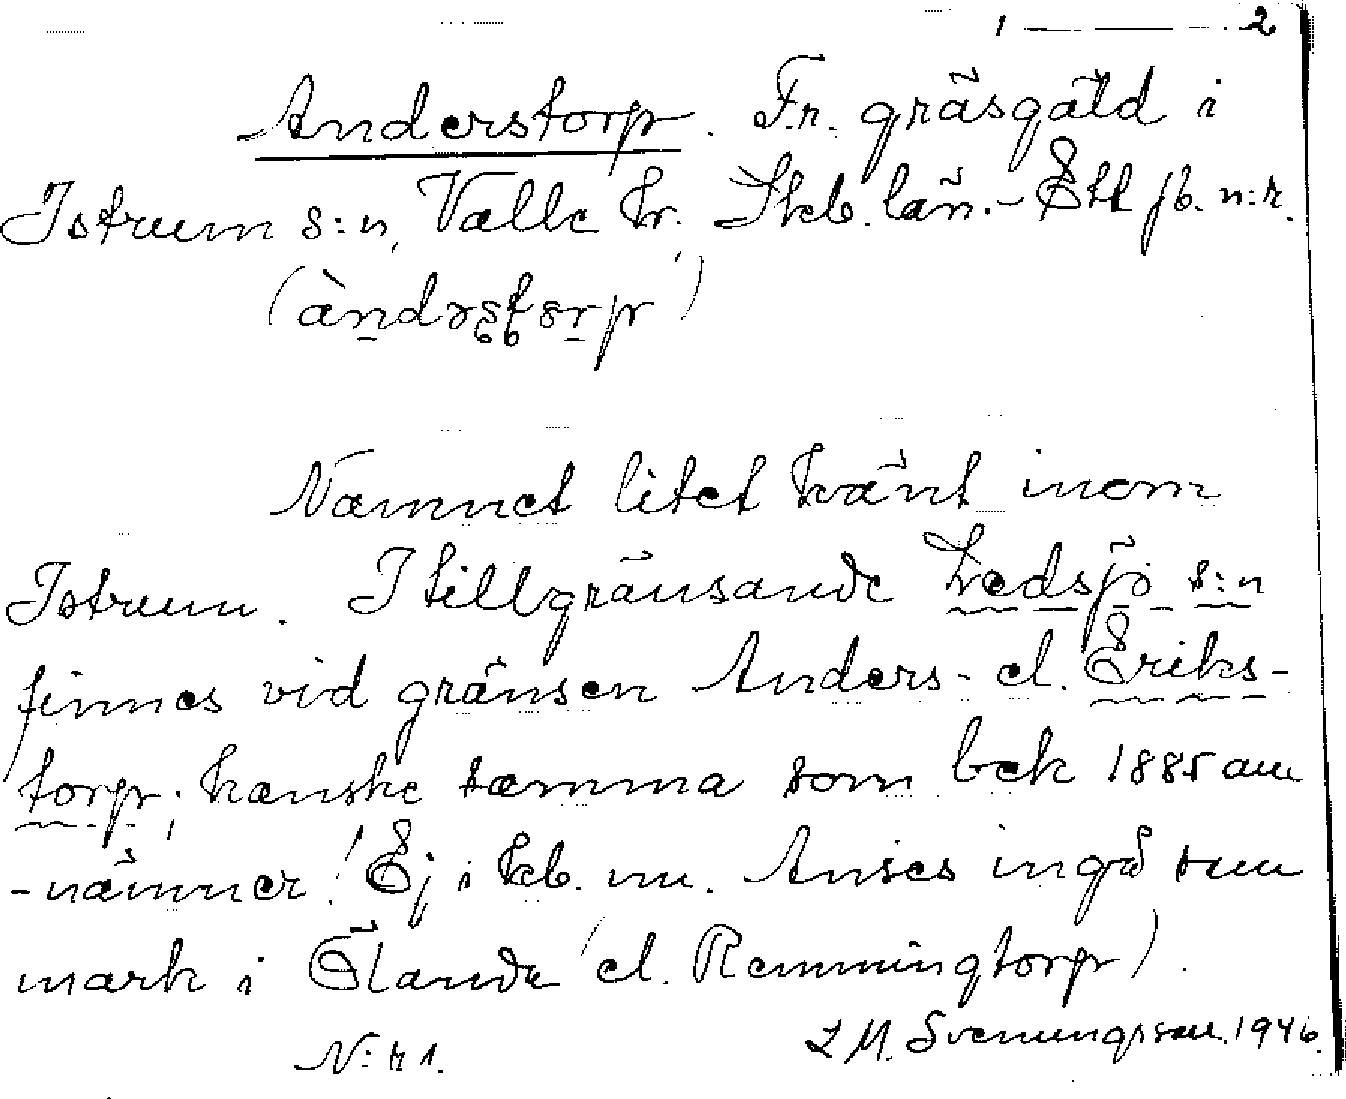 1 — — 2
Anderstorp. Fr. gräsgäld i
Istrum s:n, Valle hr. Skb. län. - Ett jb. n:r.
(àndəʂʈɵrp)
Namnet litet känt inom
Istrum. I tillgränsande Ledsjö s:n
finnes vid gränsen Anders- el. Eriks-
torp; kanske samma som bek 1885 an
-nämner! Ej i kb. nu. Anses ingå som
mark i Ölanda (el. Remmingtorp).
N:r 1.
L M. Svenungsson. 1946.